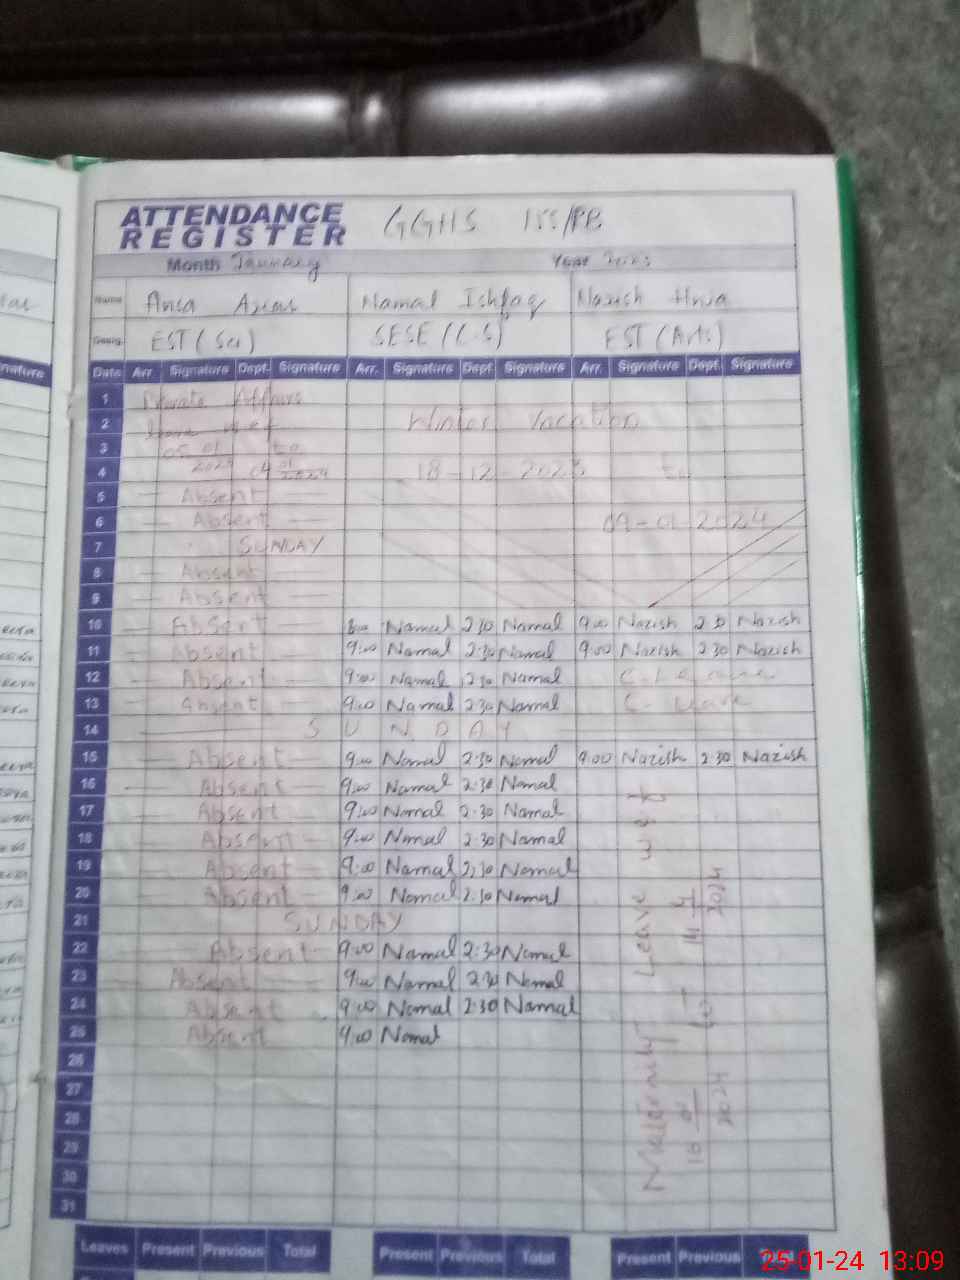 ATTENDANCE REGISTER GGHS 155/RB
Month January Year
Name Ansa Namal Ishfaq Nazish
Desig. EST (Sci) SESE (C.S) EST (Arts)
nature Date Arr. Signature Dept. Signature Arr. Signature Dept. Signature Arr. Signature Dept. Signature
1 Private Affairs
2 Leave w.e.f Winter Vacation
3 01 2024 to
4 04 01 2024 18-12-2023 to
5 Absent
6 Absent 09-01-2024
7 SUNDAY
8 Absent
9 Absent
10 Absent Namal 2:30 Namal 9:00 Nazish 2:30 Nazish
11 Absent 9:00 Namal 2:30 Namal 9:00 Nazish 2:30 Nazish
12 Absent 9:00 Namal 2:30 Namal C-Leave
13 Absent 9:00 Namal 2:30 Namal C-Leave
14 SUNDAY
15 Absent 9:00 Namal 2:30 Namal 9:00 Nazish 2:30 Nazish
16 Absent 9:00 Namal 2:30 Namal
17 Absent 9:00 Namal 2:30 Namal
18 Absent 9:00 Namal 2:30 Namal
19 Absent 9:00 Namal 2:30 Namal
20 Absent 9:00 Namal 2:30 Namal
21 SUNDAY
22 Absent 9:00 Namal 2:30 Namal
23 Absent 9:00 Namal 2:30 Namal
24 Absent 9:00 Namal 2:30 Namal
25 Absent 9:00 Namal
26
27
28
29
30
31
Maternity Leave w.e.f
16 01 2024 to 14 4 2024
Leaves Present Previous Total Present Previous Total Present Previous Total
25-01-24 13:09